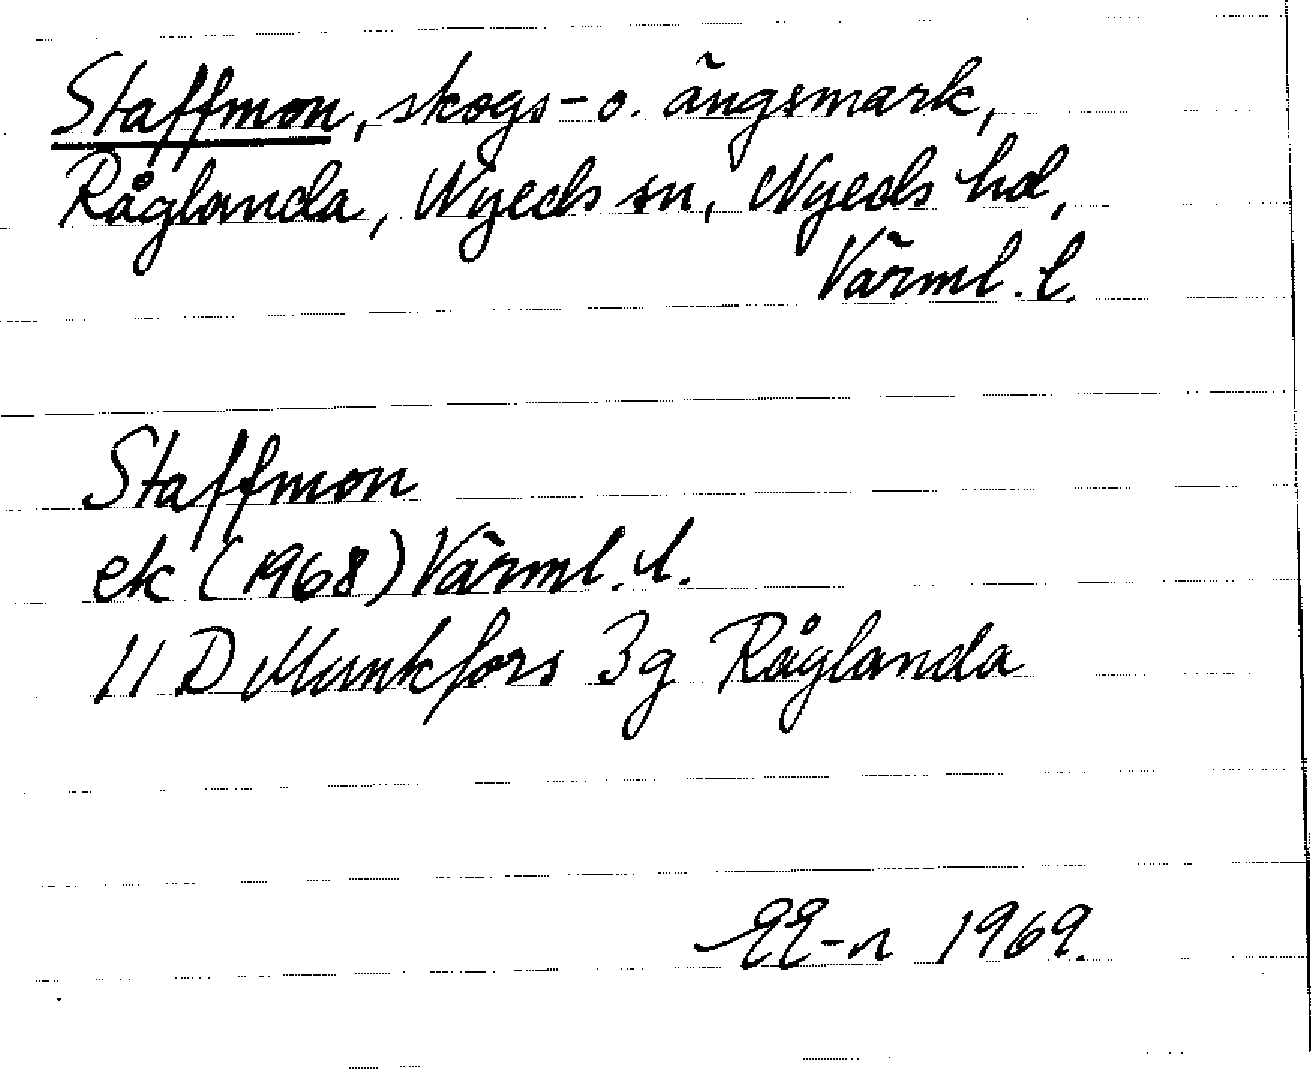 Staffmon, skogs- o. ängsmark,
Råglanda, Nyeds sn, Nyeds hd,
Värml. l.
Staffmon
ek (1968) Värml. l.
11 D Munkfors 3g Råglanda
EE-n 1969.